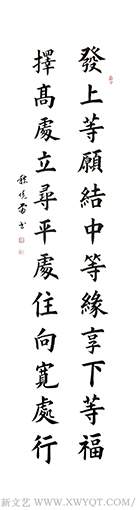 發上等願結中等緣享下等福
擇高處立尋平處住向寬處行
新文艺 WWW.XWYQT.COM